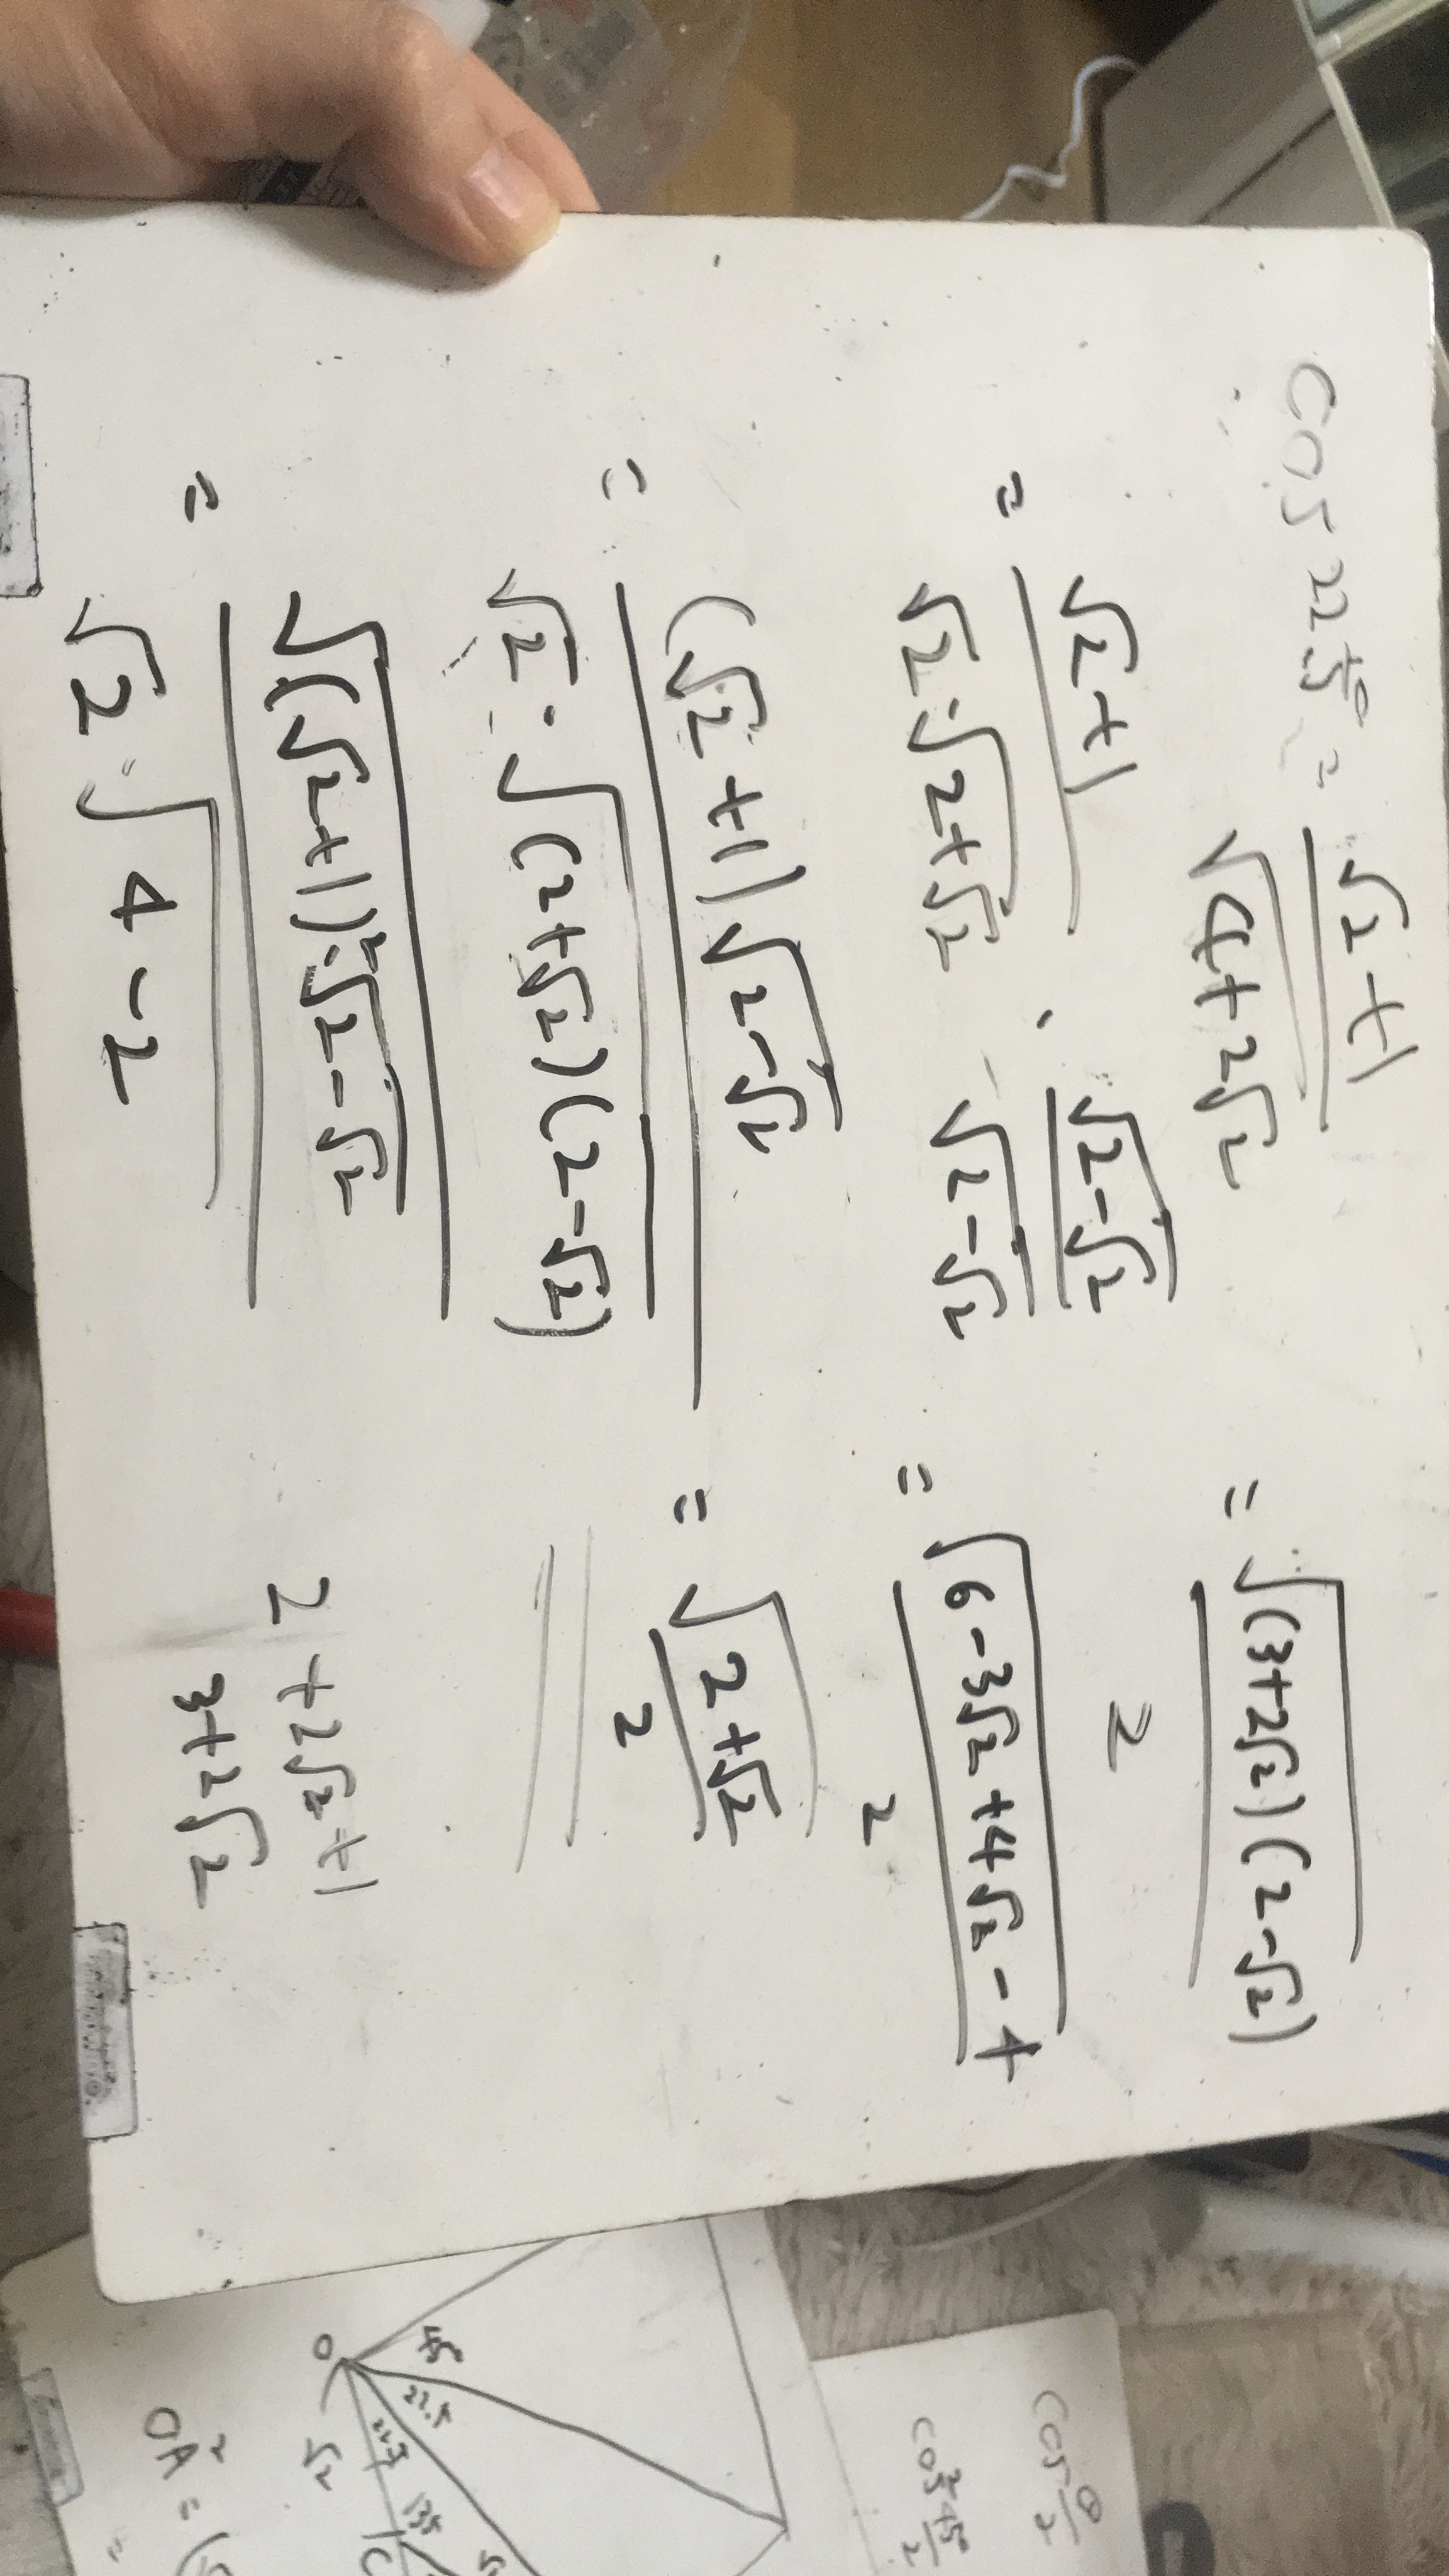 cos 22.5° = (√2+1)/√(4+2√2)
= (√2+1)/(√2·√(2+√2)) · √(2-√2)/√(2-√2)
= (√2+1)√(2-√2)/(√2·√((2+√2)(2-√2)))
= √((√2+1)²·√(2-√2))/(√2·√(4-2))
= √((3+2√2)(2-√2))/2
= √(6-3√2+4√2-4)/2
= √(2+√2)/2
2+2√2+1
3+2√2
O
45
22.5
22.5
√2
135
OA² = (
=
cos θ/2
cos² 45°/2